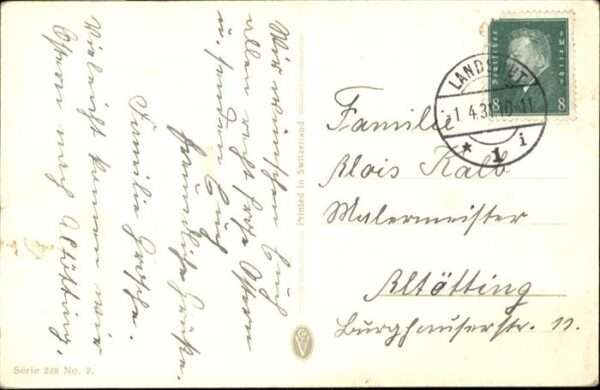 Wir wünschen Euch
allen recht frohe Ostern
u. senden Euch
freundliche Grüße.
Familie
Vieleicht kommen wir
Ostern nach Altötting.
Printed in Switzerland
Série 228 No. 2.
Deutsches Reich
8 8
LANDSHUT
1.4.31.10-11
* 1 i
Familie
Alois Kalb
Malermeister
Altötting
Burghauserstr. 11.